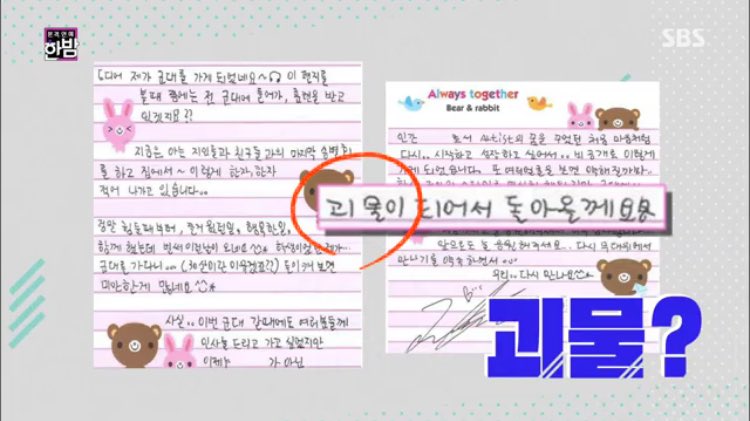 본격연예
한밤
SBS
드디어 제가 군대를 가게 되었네요~ 이 편지를
볼때 쯤에는 전 군대에 들어가, 훈련을 받고
있겠지요??
지금은 아는 지인들과 친구들 과의 마지막
를 하고 집에서~ 이렇게 한자, 한자
적어 나가고 있습니다..
정말 힘들때부터, 즐거웠던일, 행복한일,
함께 했는데 벌써 이런날이 오네요^^* 학생이었던 제가...
군대를 가다니... (30살이란 이유겠죠??) 돌이켜 보면
미안한게 많네요^^*
사실.. 이번 군대 갈때에도 여러분들께
인사를 드리고 가고 싶었지만
이제는 가 아닌
Always together
Bear & rabbit
인간 로서 Artist의 꿈을 꾸었던 처음 마음처럼
다시.. 시작하고 성장하고 싶어서.. 비공개로 이렇게
가게 되었습니다. 또 여러분들을 보면 약해질까봐..
괴물이 되어서 돌아올께요
앞으로도 늘 응원해주세요.. 다시 무대위에서
만나기를 약속하면서...
우리.. 다시 만나요^^*
괴물?